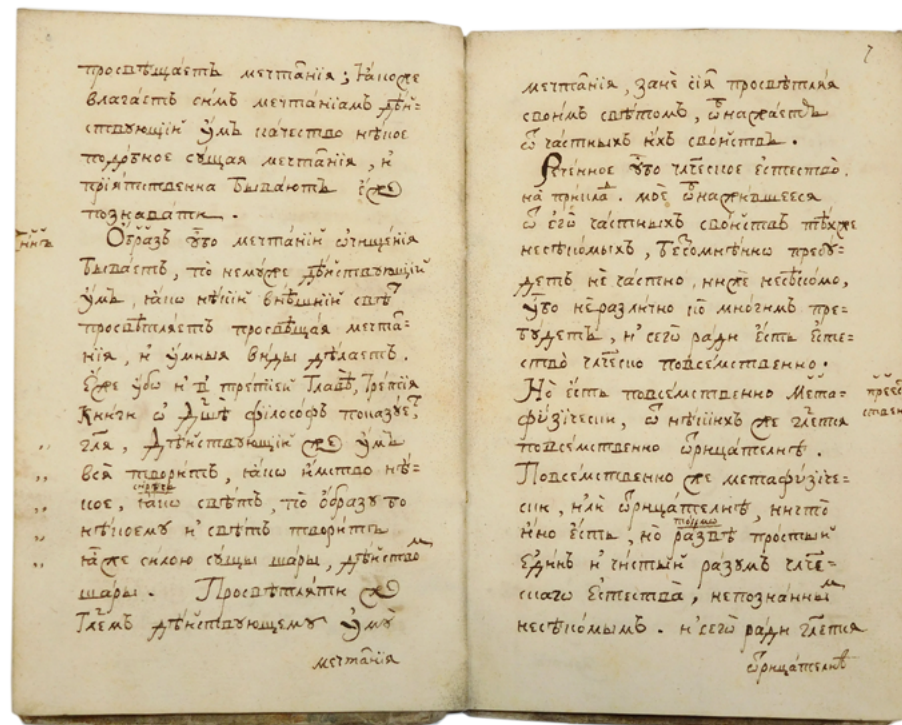 просвѣщаетъ мечтанїя; ꙗкоже
влагаетъ симъ мечтанїамъ дѣй=
ствующїй ѹмъ качество нѣкое
подобное сущая мечтанїя, и
прїятственна бываютъ еже
познавати.
Образъ ѹбо мечтанїй ѡчищенїя
бываетъ, по немуже дѣйствующїй
ѹмъ, ꙗкѡ нѣкїй внѣшнїй свѣⷮ
просвѣтляетъ просвѣщая мечта=
нїя, и ѹмныя виды дѣлаетъ.
Еже ѹбо и в̾ третїей Главѣ, Третїя
Книги ѡ Дш҃ѣ философъ показуеⷮ,
гл҃я, Дѣйствующїй же ѹмъ
вся творитъ, ꙗкѡ имство нѣ=
кое, ꙗкѡ свѣтъ, по образу бо
нѣкоему и свѣтъ творитъ
ꙗже силою сущы шары, дѣйствоⷨ
шары. Просвѣтляти же
Гл҃емъ дѣйствующему ѹму
мечтанїя
7
мечтанїя, зане сїя просвѣтляя
своимъ свѣтомъ, ѿнажаетъ
ѿ частныхъ ихъ свойствъ.
Реченное ѹбо чл҃ческое естество,
на приклаⷣ. мое ѿнажившееся
ѿ егѡ частныхъ свойствъ тѣхже
несѣкомыхъ, безсомнѣнно пребу=
детъ не частно, ниже несѣкомо,
ѹбо неразлично ко многимъ пре=
будетъ, и сегѡ ради есть есте=
ство чл҃ческо повсемственно.
Но есть повсемственно Мета=
фѵзїчески, ѿ нѣкїихъ же гл҃ется
повсемственно ѿрицателнѣ.
Повсемственно же метафѵзїче=
ски, или ѿрицателнѣ, ничто
ино есть, но развѣ простый
единъ и чистый разумъ чл҃че=
скагѡ Естества, непознанныⷨ
несѣкомымъ. и сегѡ ради гл҃ется
ѿрицателнѣ